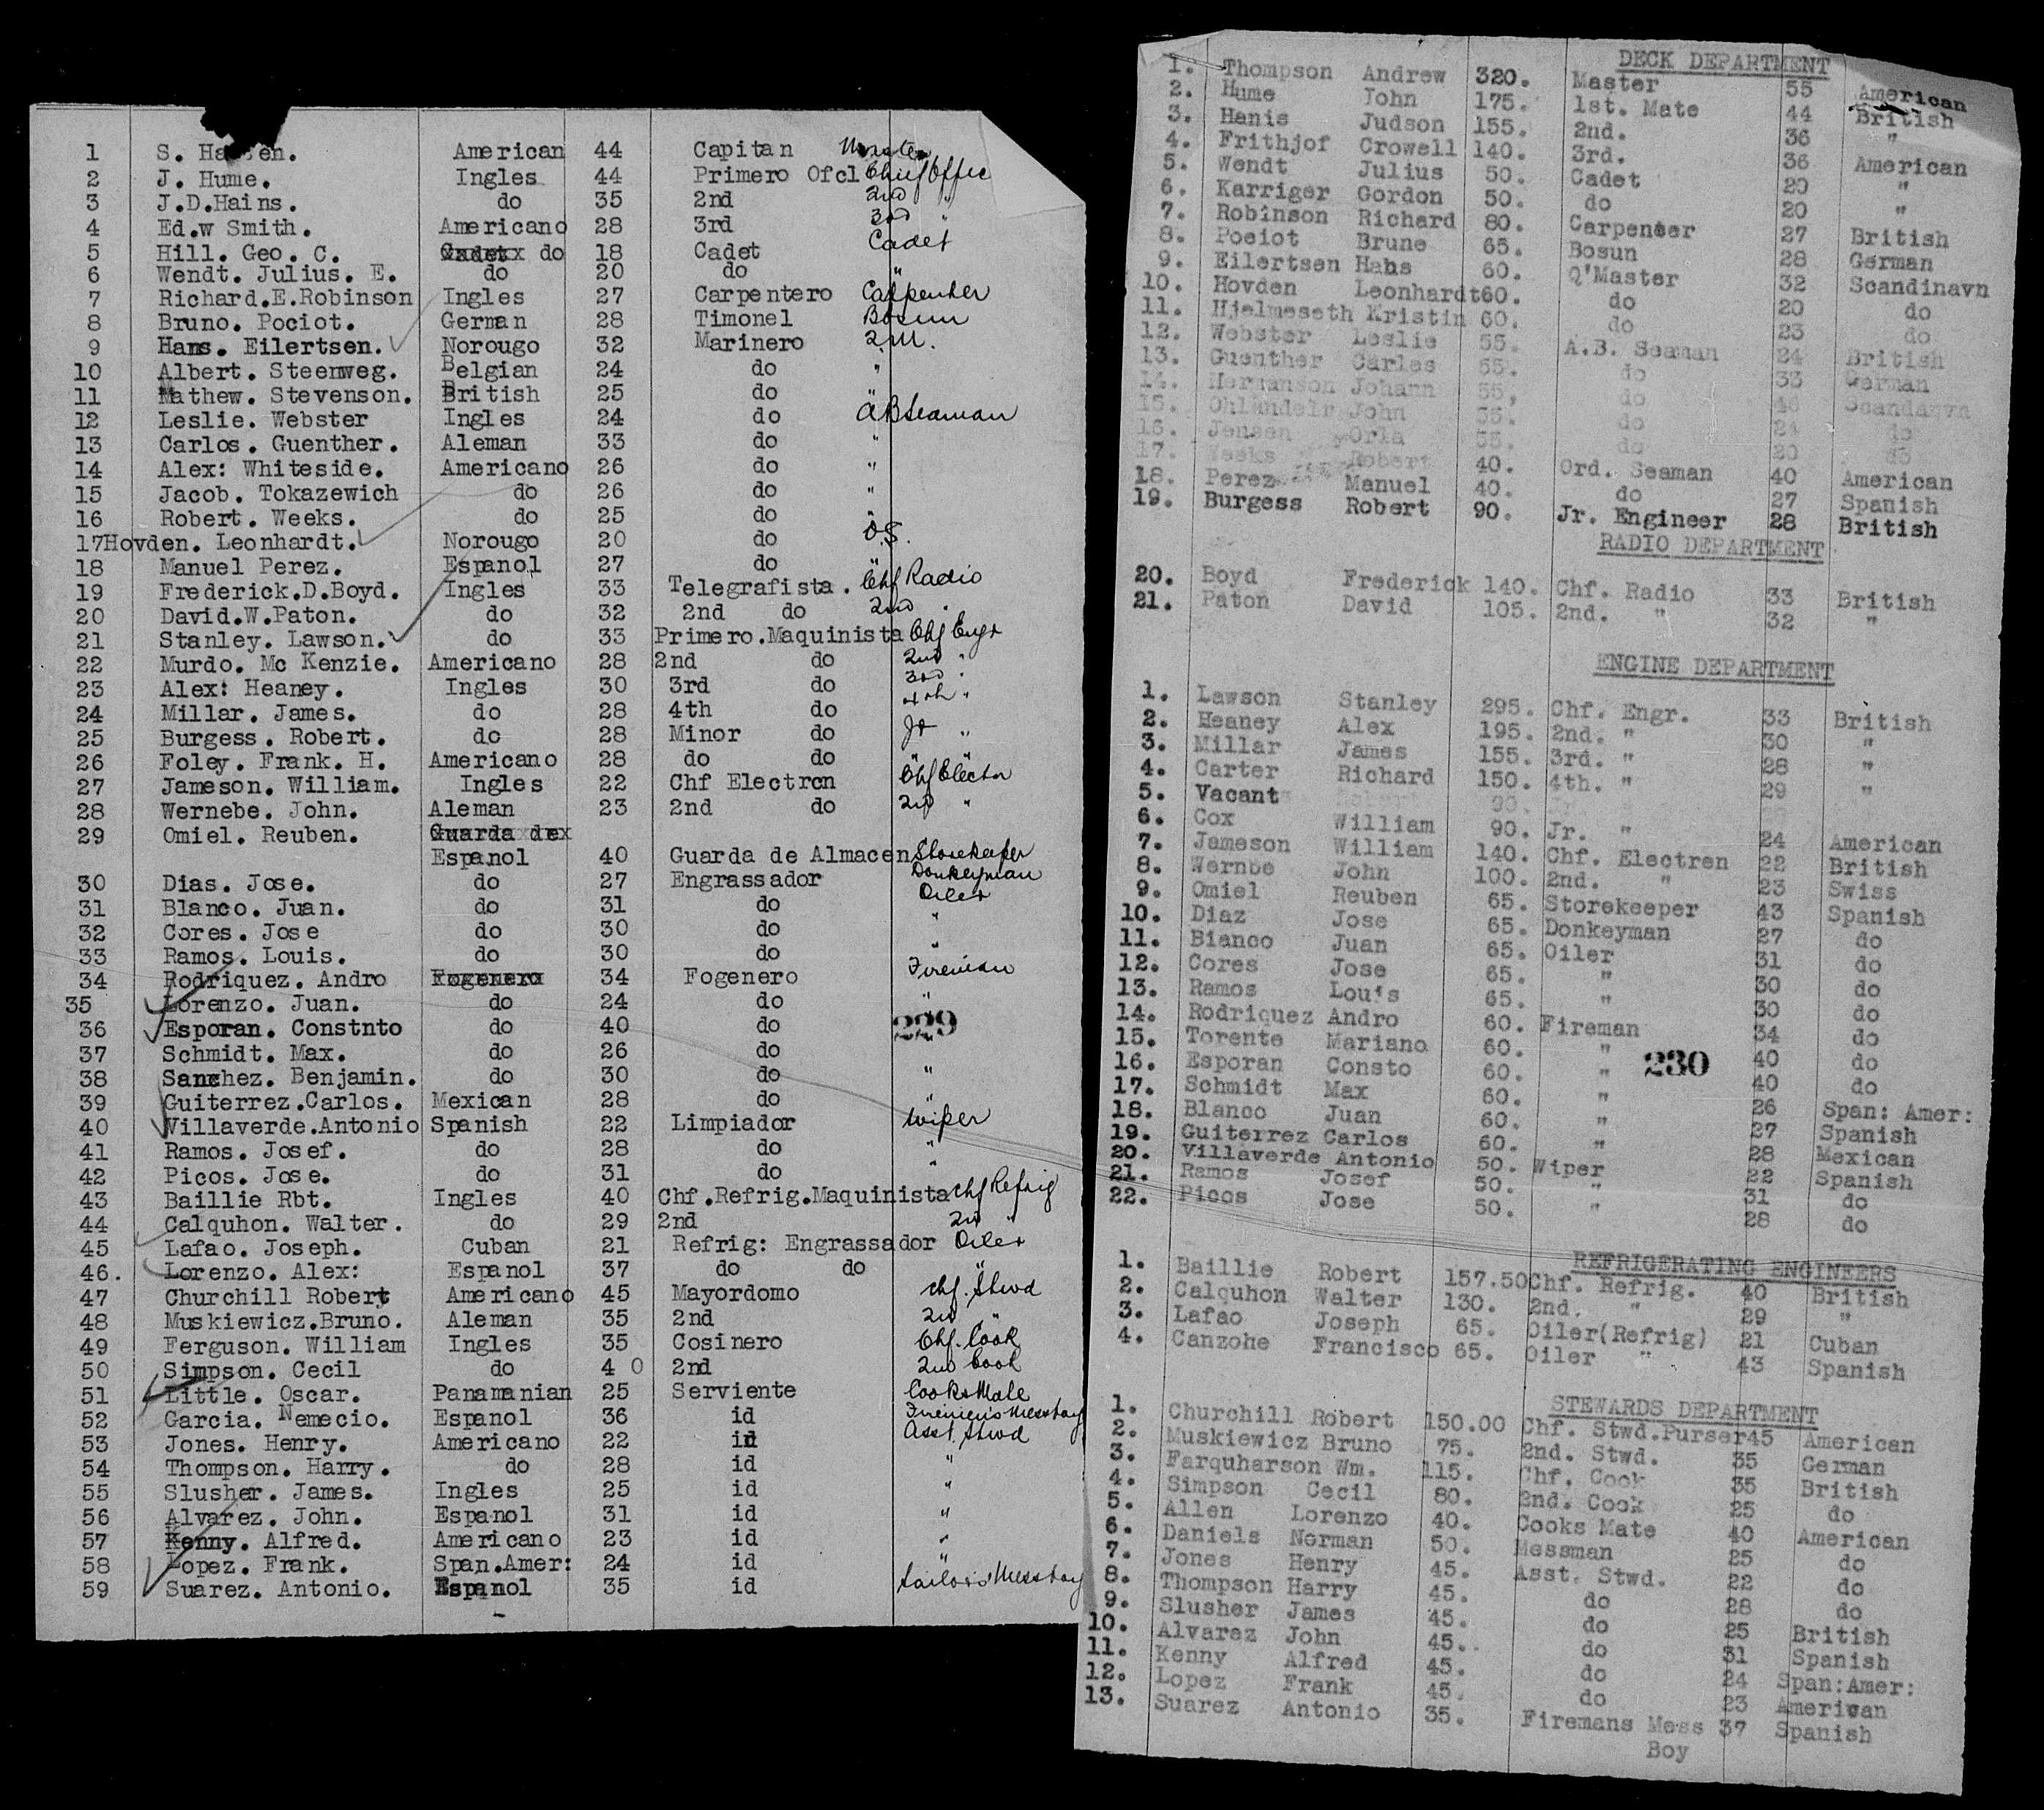 1 S. Ha en. American 44 Capitan Master
2 J. Hume. Ingles 44 Primero Ofcl Chief Offic
3 J.D.Hains. do 35 2nd 2nd "
4 Ed.w Smith. Americano 28 3rd 3rd "
5 Hill. Geo. C. do 18 Cadet Cadet
6 Wendt. Julius. E. do 20 do "
7 Richard.E.Robinson Ingles 27 Carpentero Carpenter
8 Bruno. Pociot. German 28 Timonel Bosun
9 Hans. Eilertsen. Norougo 32 Marinero Q.M.
10 Albert. Steenweg. Belgian 24 do "
11 Mathew. Stevenson. British 25 do "
12 Leslie. Webster Ingles 24 do AB Seaman
13 Carlos. Guenther. Aleman 33 do "
14 Alex: Whiteside. Americano 26 do "
15 Jacob. Tokazewich do 26 do "
16 Robert. Weeks. do 25 do "
17 Hovden. Leonhardt. Norougo 20 do O.S.
18 Manuel Perez. Espanol 27 do "
19 Frederick.D.Boyd. Ingles 33 Telegrafista. Chf Radio
20 David.W.Paton. do 32 2nd do 2nd "
21 Stanley. Lawson. do 33 Primero.Maquinista Chf Engr
22 Murdo. Mc Kenzie. Americano 28 2nd do 2nd "
23 Alex: Heaney. Ingles 30 3rd do 3rd "
24 Millar. James. do 28 4th do 4th "
25 Burgess. Robert. do 28 Minor do Jr "
26 Foley. Frank. H. Americano 28 do do "
27 Jameson. William. Ingles 22 Chf Electrcn Chf Electrn
28 Wernebe. John. Aleman 23 2nd do 2nd "
29 Omiel. Reuben. Guarda de
Espanol 40 Guarda de Almacen Storekeeper
30 Dias. Jose. do 27 Engrassador Donkeyman
31 Blanco. Juan. do 31 do Oiler
32 Cores. Jose do 30 do "
33 Ramos. Louis. do 30 do "
34 Rodriquez. Andro Fogenero 34 Fogenero Fireman
35 Lorenzo. Juan. do 24 do "
36 Esporan. Constnto do 40 do "
229
37 Schmidt. Max. do 26 do "
38 Sanchez. Benjamin. do 30 do "
39 Guiterrez.Carlos. Mexican 28 do "
40 Villaverde.Antonio Spanish 22 Limpiador Wiper
41 Ramos. Josef. do 28 do "
42 Picos. Jose. do 31 do "
43 Baillie Rbt. Ingles 40 Chf.Refrig.Maquinista Chf Refrig
44 Calquhon. Walter. do 29 2nd 2nd "
45 Lafao. Joseph. Cuban 21 Refrig: Engrassador Oiler
46. Lorenzo. Alex: Espanol 37 do do "
47 Churchill Robert Americano 45 Mayordomo Chf. Stwd
48 Muskiewicz.Bruno. Aleman 35 2nd 2nd "
49 Ferguson. William Ingles 35 Cosinero Chf. Cook
50 Simpson. Cecil do 4 0 2nd 2nd Cook
51 Little. Oscar. Panamanian 25 Serviente Cooks Mate
52 Garcia. Nemecio. Espanol 36 id Firemen's Messboy
53 Jones. Henry. Americano 22 id Asst. Stwd
54 Thompson. Harry. do 28 id "
55 Slusher. James. Ingles 25 id "
56 Alvarez. John. Espanol 31 id "
57 Kenny. Alfred. Americano 23 id "
58 Lopez. Frank. Span.Amer: 24 id "
59 Suarez. Antonio. Espanol 35 id Sailors Messboy
DECK DEPARTMENT
1. Thompson Andrew 320. Master 55 American
2. Hume John 175. 1st. Mate 44 British
3. Hanis Judson 155. 2nd. 36 "
4. Frithjof Crowell 140. 3rd. 36 American
5. Wendt Julius 50. Cadet 20 "
6. Karriger Gordon 50. do 20 "
7. Robinson Richard 80. Carpenter 27 British
8. Pociot Brune 65. Bosun 28 German
9. Eilertsen Hans 60. Q'Master 32 Scandinavn
10. Hovden Leonhardt 60. do 20 do
11. Hjelmeseth Kristin 60. do 23 do
12. Webster Leslie 55. A.B. Seaman 24 British
13. Guenther Carles 55. do 33 German
14. Hermanson Johann 55, do 46 Scandanvn
15. Ohlandelr John 55. do 24 do
16. Jensen Orla 55. do 20 do
17. Weeks Robert 40. Ord. Seaman 40 American
18. Perez Manuel 40. do 27 Spanish
19. Burgess Robert 90. Jr. Engineer 28 British
RADIO DEPARTMENT
20. Boyd Frederick 140. Chf. Radio 33 British
21. Paton David 105. 2nd. " 32 "
ENGINE DEPARTMENT
1. Lawson Stanley 295. Chf. Engr. 33 British
2. Heaney Alex 195. 2nd. " 30 "
3. Millar James 155. 3rd. " 28 "
4. Carter Richard 150. 4th. " 29 "
5. Vacant 90.
6. Cox William 90. Jr. " 24 American
7. Jameson William 140. Chf. Electren 22 British
8. Wernbe John 100. 2nd. " 23 Swiss
9. Omiel Reuben 65. Storekeeper 43 Spanish
10. Diaz Jose 65. Donkeyman 27 do
11. Bianco Juan 65. Oiler 31 do
12. Cores Jose 65. " 30 do
13. Ramos Louis 65. " 30 do
14. Rodriquez Andro 60. Fireman 34 do
15. Torente Mariano 60. " 40 do
230
16. Esporan Consto 60. " 40 do
17. Schmidt Max 60. " 26 Span: Amer:
18. Blanco Juan 60. " 27 Spanish
19. Guiterrez Carlos 60. " 28 Mexican
20. Villaverde Antonio 50. Wiper 22 Spanish
21. Ramos Josef 50. " 31 do
22. Picos Jose 50. " 28 do
REFRIGERATING ENGINEERS
1. Baillie Robert 157.50 Chf. Refrig. 40 British
2. Calquhon Walter 130. 2nd. " 29 "
3. Lafao Joseph 65. Oiler(Refrig) 21 Cuban
4. Canzohe Francisco 65. Oiler " 43 Spanish
STEWARDS DEPARTMENT
1. Churchill Robert 150.00 Chf. Stwd.Purser 45 American
2. Muskiewicz Bruno 75. 2nd. Stwd. 35 German
3. Farquharson Wm. 115. Chf. Cook 35 British
4. Simpson Cecil 80. 2nd. Cook 25 do
5. Allen Lorenzo 40. Cooks Mate 40 American
6. Daniels Norman 50. Messman 25 do
7. Jones Henry 45. Asst. Stwd. 22 do
8. Thompson Harry 45. do 28 do
9. Slusher James 45. do 25 British
10. Alvarez John 45. do 31 Spanish
11. Kenny Alfred 45. do 24 Span:Amer:
12. Lopez Frank 45. do 23 American
13. Suarez Antonio 35. Firemans Mess 37 Spanish
Boy